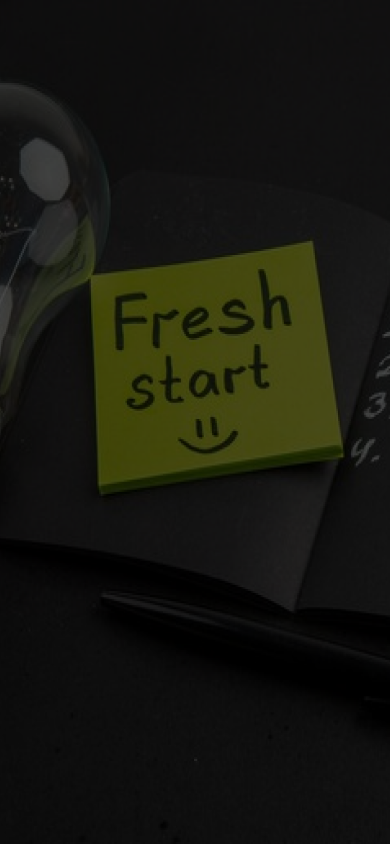 Fresh
start
2
3
4.